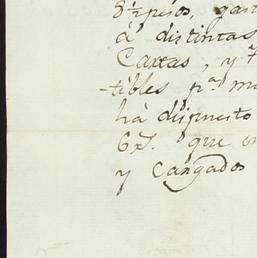 8½ pesos, gas
à distintas
Caxas, y
-tibles pª mu
hà dispuesto
que
y Cargados